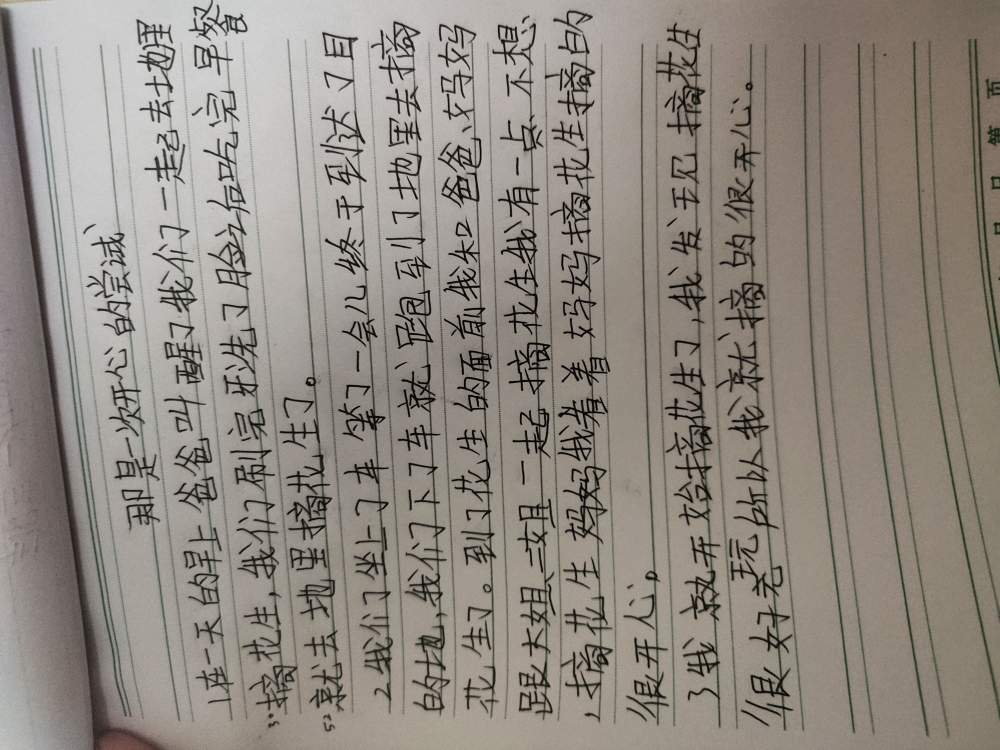 那是一次开心的尝试
1在一天的早上爸爸叫醒了我们一起去土地里
3:摘花生,我们刷完牙洗了脸之后吃完早餐
5:就去地里摘花生了。
2我们坐上了车等了一会儿终于到达了目
的地,我们下了车就跑到了地里去摘
花生了。到了花生的面前我和爸爸、妈妈
跟大姐二姐一起摘花生我有一点不想
,摘花生妈妈我看着妈妈摘花生摘的
很开心。
3我就开始摘花生了,我发现摘花生
很好玩所以我就摘的很开心。
第 页